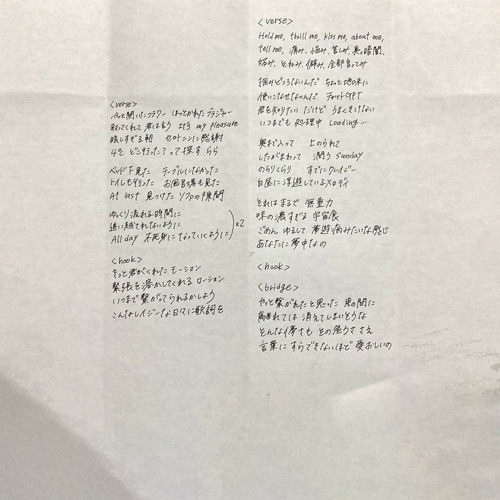 <verse>
パッと開いたフラワー ほわっとかれたブラジャー
取ってくれて 君は言う it's my pleasure
眩しすぎる朝 セロトニンに感謝
今を どこ行った？って探す らら
ベッド下見た テーブルになかった
トイレも行った お風呂場も見た
At last 見つけた ソファの隙間
ゆっくり流れる時間に
追い越されないように
All day 不死身になっていくように ×2
<hook>
きっと君がくれた モーション
緊張を溶かしてくれる ローション
いつまで繋がってられるかしら
こんなレイジーな日々に歌詞を
<verse>
Hold me, thrill me, kiss me, about me,
tell me, 痛み、悩み、苦しみ、奥の暗闇、
妬み、とねみ、僻み、全部言ってみ
掴みどころないんだ ちょっと地球に
使いこなせないんだ チャットGPT
君を知りたい だけど うまくきけない
いつまでも 処理中 Loading...
奥まで入って 上のられて
したがまわって 潤う sunday
のらりくらり すでにクレイジー
白昼に浮遊しているメロディ
それはまるで 無重力
味の濃すぎる 宇宙食
ごめん ゆるして 夢遊病みたいな感じ
あなたに夢中なの
<hook>
<bridge>
やっと繋がれたと思った 束の間に
離れては 消えてしまいそうな
そんな儚さも その危うささえ
言葉にすらできないほど 愛おしいの